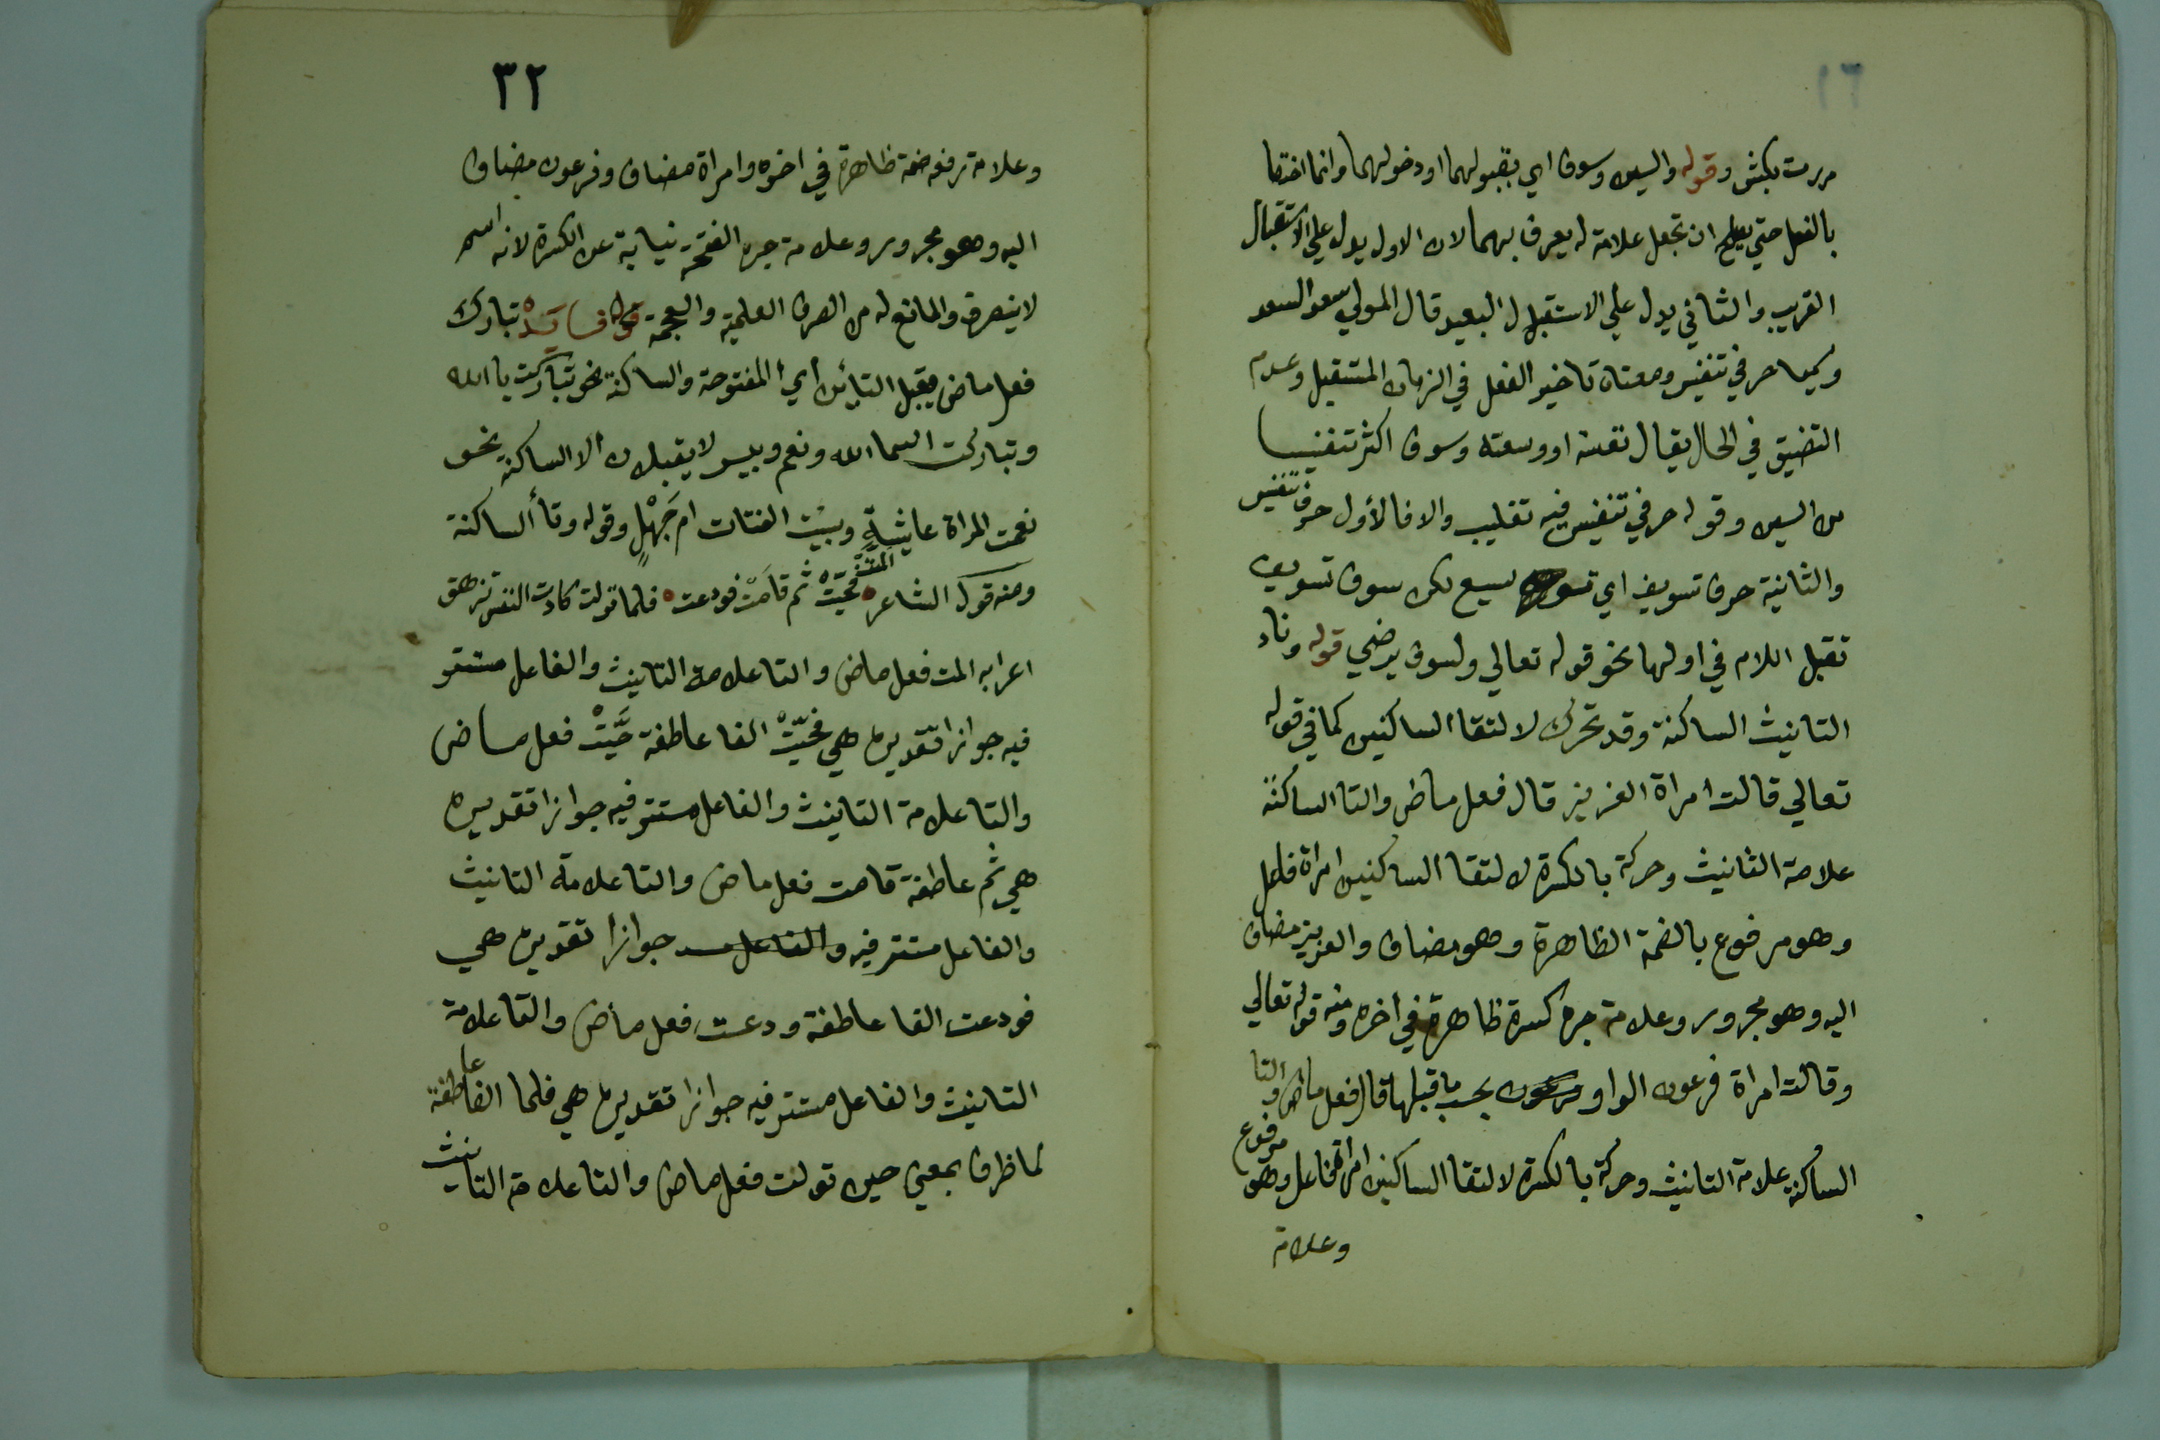 ١٦
مررت بكبش وقوله والسين وسوف اي بقبولهما او دخولهما وانما اختصا
بالفعل حتي يصلح ان تجعل علامة له يعرف بهما لان الاول يدل علي الاستقبال
القريب والثاني يدل علي الاستقبال البعيد قال المولي سعد السعد
وكيما حرفي تنفيس ومعناه تاخير الفعل في الزمان المستقبل وعدم
التضيق في الحال يقال نفسته او وسعته وسوف اكثر تنفيسا
من السين وقوله حرفي تنفيس فيه تغليب والا فالأول حرف تنفيس
والثانية حرف تسويف اي توسيع لكن سوف تسويف
تقبل اللام في اولها نحو قوله تعالي ولسوف يرضي قوله وتاء
التانيث الساكنة وقد تحرك لالتقا الساكنين كما في قوله
تعالي قالت امراة العزيز قال فعل ماض والتا الساكنة
علامة التانيث وحركة بالكسرة لالتقا الساكنين امراة فاعل
وهو مرفوع بالضمة الظاهرة وهو مضاف والعزيز مضاف
اليه وهو مجرور وعلامة جره كسرة ظاهرة في اخره ومنه قوله تعالي
وقالت امراة فرعون الواو بحسب ما قبلها قال فعل ماض والتا
الساكنة علامة التانيث وحركة بالكسرة لالتقا الساكنين امراة فاعل وهو مرفوع
وعلامة
٣٢
وعلامة رفعه ضمة ظاهرة في اخره وامراة مضاف وفرعون مضاف
اليه وهو مجرور وعلامة جره الفتحة نيابة عن الكسرة لانه اسم
لا ينصرف والمانع له من الصرف العلمية والعجمة قوله فايدة تبارك
فعل ماض يقبل التائين أي المفتوحة والساكنة نحو تباركت يا الله
وتباركت اسما الله ونعم وبيس لا يقبلان الا الساكنة نحو
نعمت المراة عايشة وبيست الفتات ام جهل وقوله وتا ألساكنة
ومنه قول الشاعر المت فحيت ثم قامت فودعت فلما تولت كادت النفس تزهق
اعرابه المت فعل ماض والتا علامة التانيث والفاعل مستتر
فيه جوازا تقديره هي فحيت الفا عاطفة حيت فعل ماض
والتا علامة التانيث والفاعل مستتر فيه جوازا تقديره
هي ثم عاطفة قامت فعل ماض والتا علامة التانيث
والفاعل مستتر فيه والفاعل مسـ جوازا تقديره هي
فودعت الفا عاطفة ودعت فعل ماض والتا علامة
التانيث والفاعل مستتر فيه جوازا تقديره هي فلما الفا عاطفة
لما ظرف بمعني حين تولت فعل ماض والتا علامة التانيث